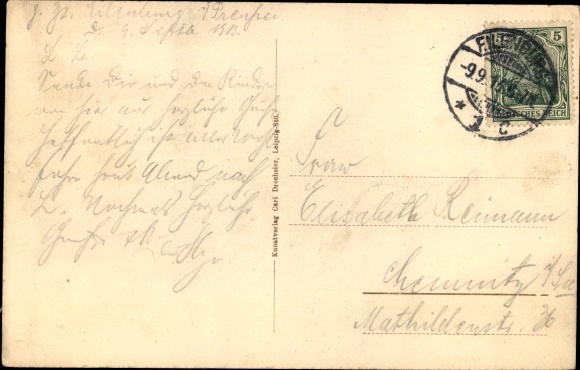 z. Zt. Eilenburg i/Preußen
D. 9. Septb. 1913.
L. L.
Sende Dir und den Kindern
von hier aus herzliche Grüße
Hoffentlich ist alles wohl
fahre heut Abend nach
L. Nochmals herzliche
Grüße
Kunstverlag Carl Drechsler, Leipzig-
EILENBURG
-9.9.
* C
5
DEUTSCHES REICH
Frau
Elisabeth Reimann
Chemnitz i/Sa
Mathildenstr.